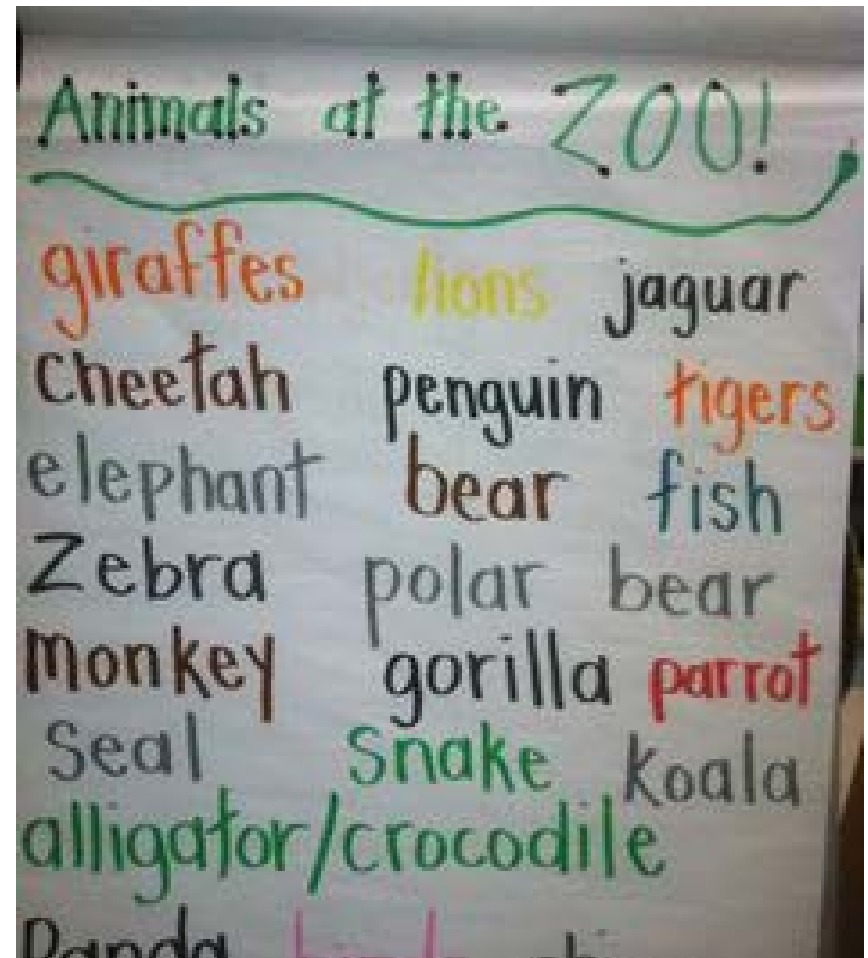 Animals at the ZOO!
giraffes lions jaguar
Cheetah penguin tigers
elephant bear fish
Zebra polar bear
monkey gorilla parrot
Seal Snake Koala
alligator/crocodile
Panda